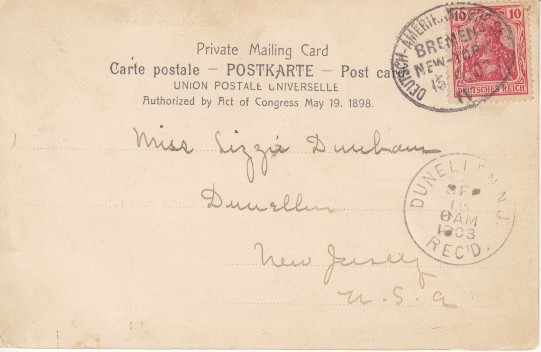 Private Mailing Card
Carte postale – POSTKARTE – Post card
UNION POSTALE UNIVERSELLE
Authorized by Act of Congress May 19. 1898.
DEUTSCH-AMERIKANISCHE
BREMEN
NEW-YORK
15
10
DEUTSCHES REICH
Miss Lizzie Dunham
Dunellen
New Jersey
U.S.A
DUNELLEN, N.J.
SEP
6 AM
1903
REC'D.